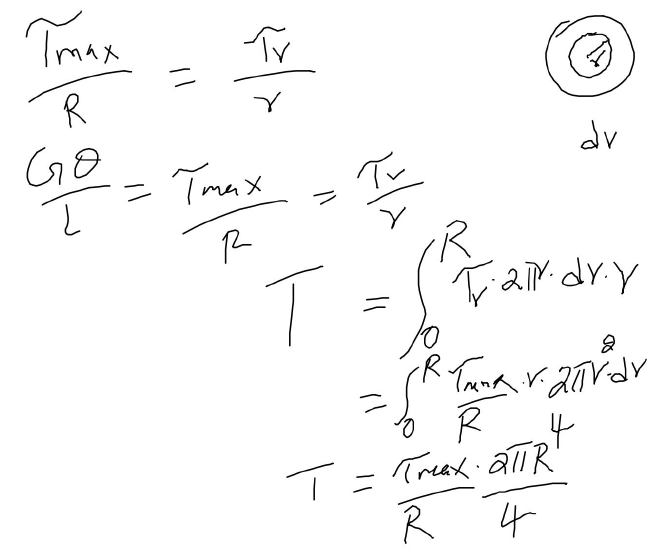 τmax/R = τr/r
dr
Gθ/L = τmax/R = τr/r
T = ∫₀ᴿ τr · 2πr · dr · r
= ∫₀ᴿ τmax/R · r · 2πr² · dr
T = τmax/R · 2πR⁴/4